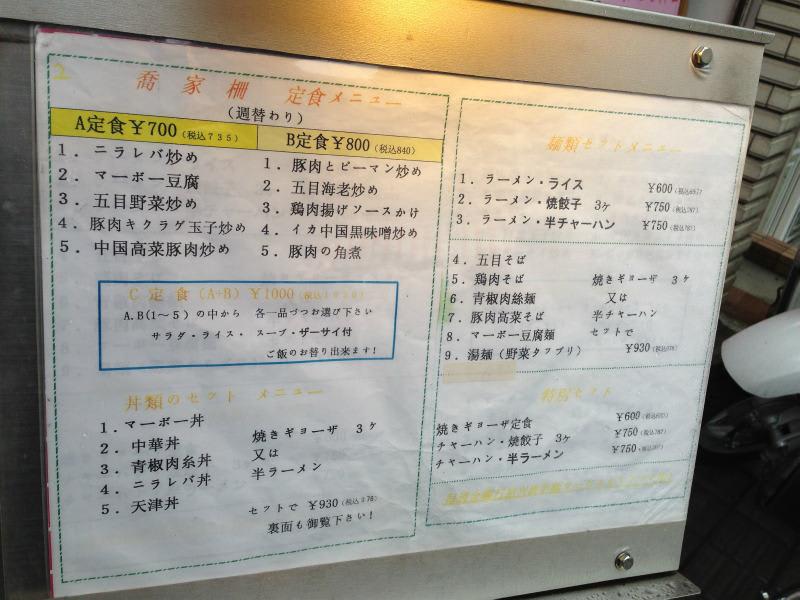 2
喬家柵 定食メニュー
(週替わり)
A定食￥700(税込735)
1．ニラレバ炒め
2．マーボー豆腐
3．五目野菜炒め
4．豚肉キクラゲ玉子炒め
5．中国高菜豚肉炒め
B定食￥800(税込840)
1．豚肉とピーマン炒め
2．五目海老炒め
3．鶏肉揚げソースかけ
4．イカ中国黒味噌炒め
5．豚肉の角煮
C定食(A+B)￥1000(税込1050)
A.B(1～5)の中から 各一品づつお選び下さい
サラダ・ライス・スープ・ザーサイ付
ご飯のお替り出来ます!
丼類のセット メニュー
1．マーボー丼
2．中華丼
3．青椒肉糸丼
4．ニラレバ丼
5．天津丼
焼きギョーザ 3ヶ
又は
半ラーメン
セットで ￥930(税込976)
裏面も御覧下さい!
麺類セットメニュー
1．ラーメン・ライス ￥600
2．ラーメン・焼餃子 3ヶ ￥750(税込787)
3．ラーメン・半チャーハン ￥750(税込787)
4．五目そば
5．鶏肉そば
6．青椒肉絲麺
7．豚肉高菜そば
8．マーボー豆腐麺
9．湯麺(野菜タップリ)
焼きギョーザ 3ヶ
又は
半チャーハン
セットで
￥930(税込976)
特別セット
焼きギョーザ定食 ￥600
チャーハン・焼餃子 3ヶ ￥750(税込787)
チャーハン・半ラーメン ￥750(税込787)